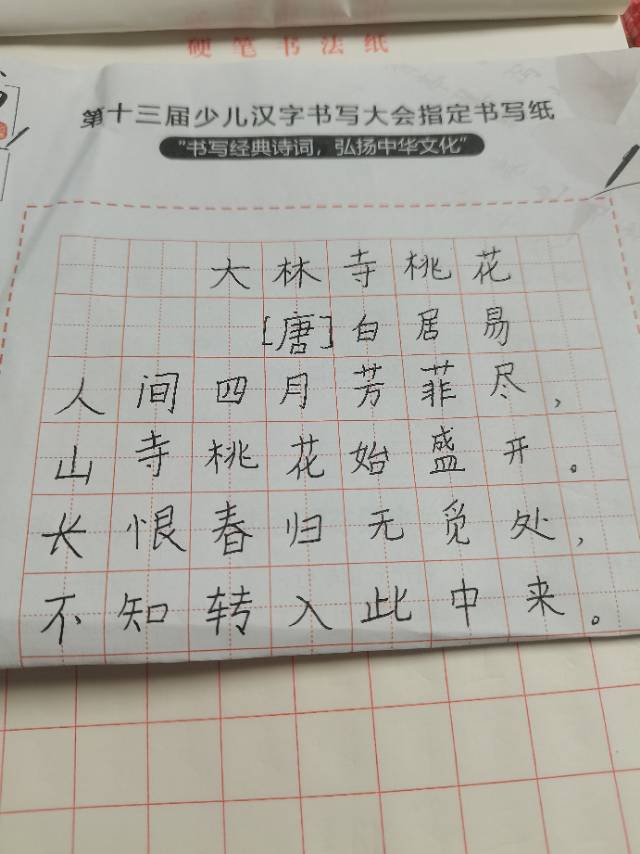 硬笔书法纸
第十三届少儿汉字书写大会指定书写纸
“书写经典诗词，弘扬中华文化”
大林寺桃花
[唐]白居易
人间四月芳菲尽，
山寺桃花始盛开。
长恨春归无觅处，
不知转入此中来。